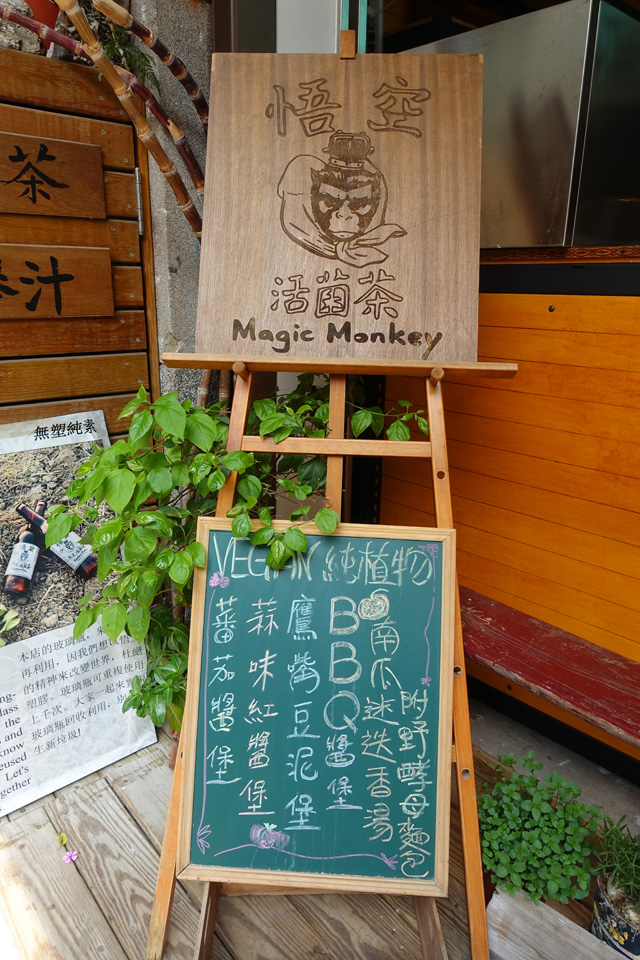 悟空
活菌茶
Magic Monkey
茶
汁
無塑純素
VEGAN 純植物
南瓜迷迭香湯
附野酵母麵包
BBQ醬堡
鷹嘴豆泥堡
蒜味紅醬堡
蕃茄醬堡
本店的玻璃瓶，
再利用，因我們想以
的精神來改變世界，杜絕
塑膠。玻璃瓶可重複使用
上千次。大家一起來
玻璃瓶回收利用，別
生新垃圾!
the
and
know
eused
Let's
gether